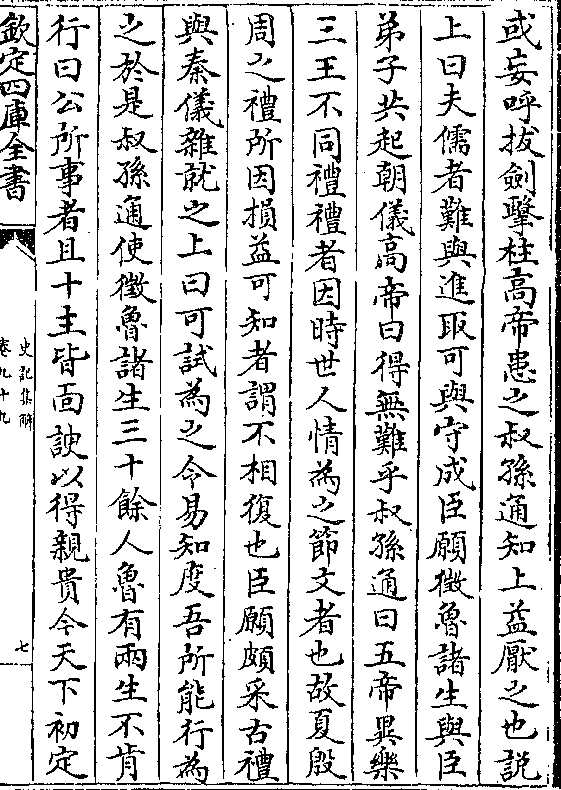 或妄呼拔劍擊柱高帝患之叔孫通知上益厭之也説
上曰夫儒者難與進取可與守成臣願徵魯諸生與臣
弟子共起朝儀高帝曰得無難乎叔孫通曰五帝異樂
三王不同禮禮者因時世人情為之節文者也故夏殷
周之禮所因損益可知者謂不相復也臣願頗采古禮
與秦儀雜就之上曰可試為之令易知度吾所能行為
之於是叔孫通使徵魯諸生三十餘人魯有兩生不肯
行曰公所事者且十主皆面諛以得親貴今天下初定
欽定四庫全書
史記集解
卷九十九
七